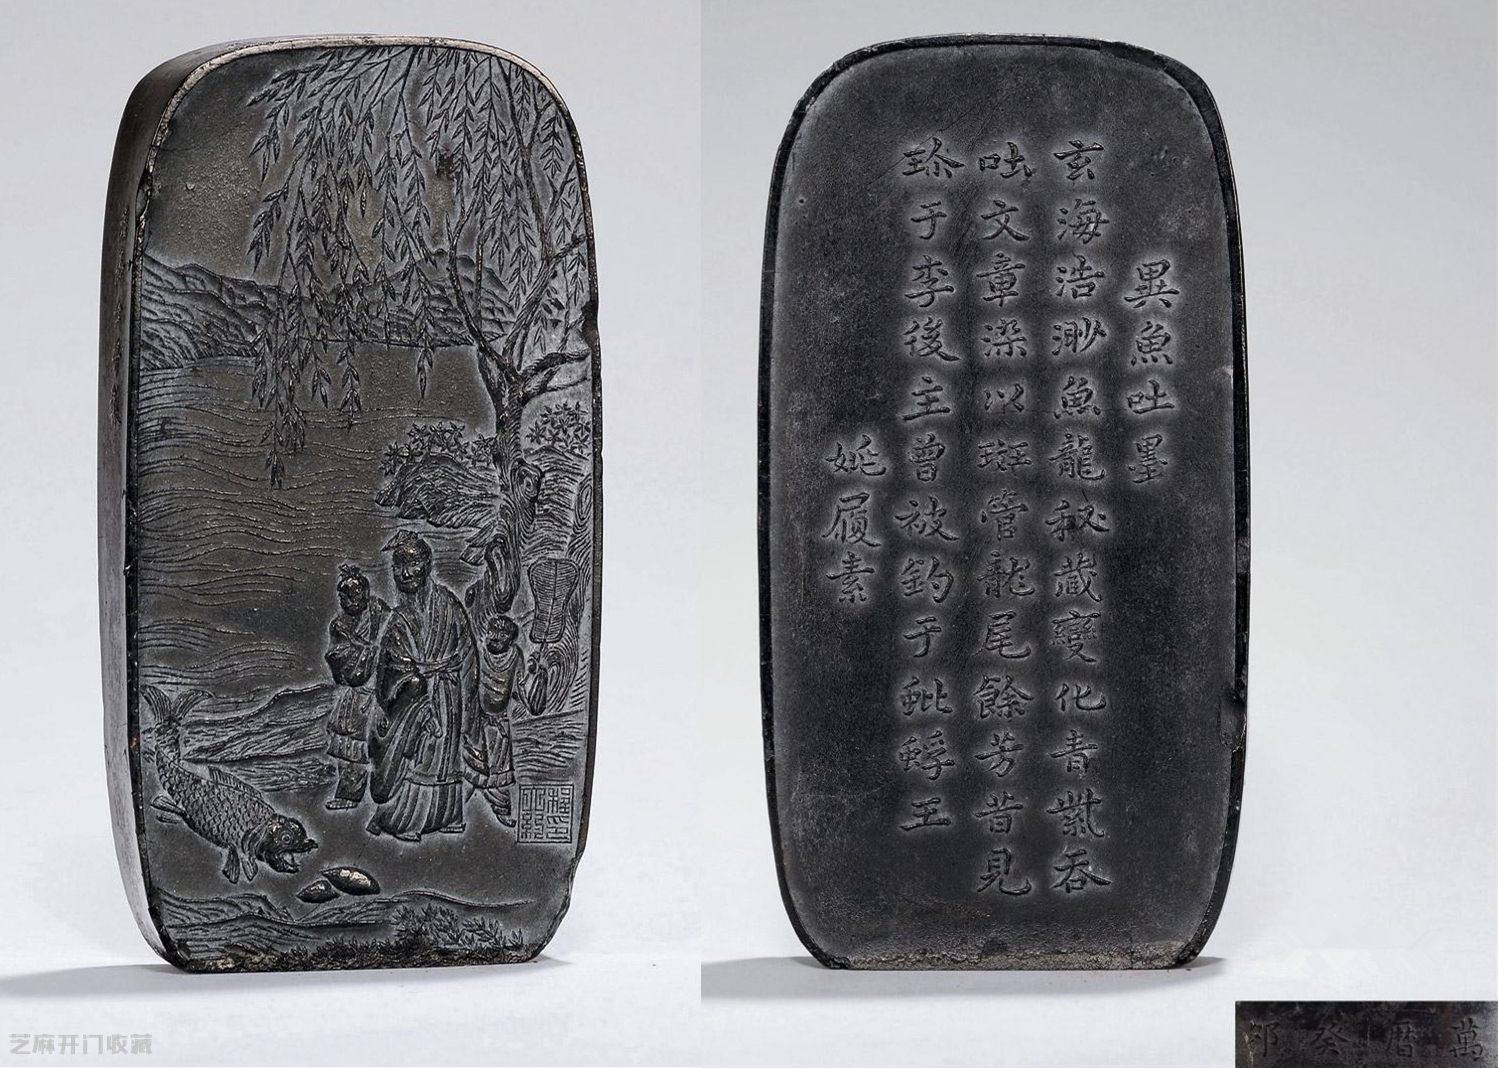 異魚吐墨
玄海浩渺魚龍秘藏變化青紫吞
吐文章染以斑管龍尾餘芳昔見
珎于李後主曾被釣于蚍蜉王
姚履素
萬暦癸卯
芝麻开门收藏